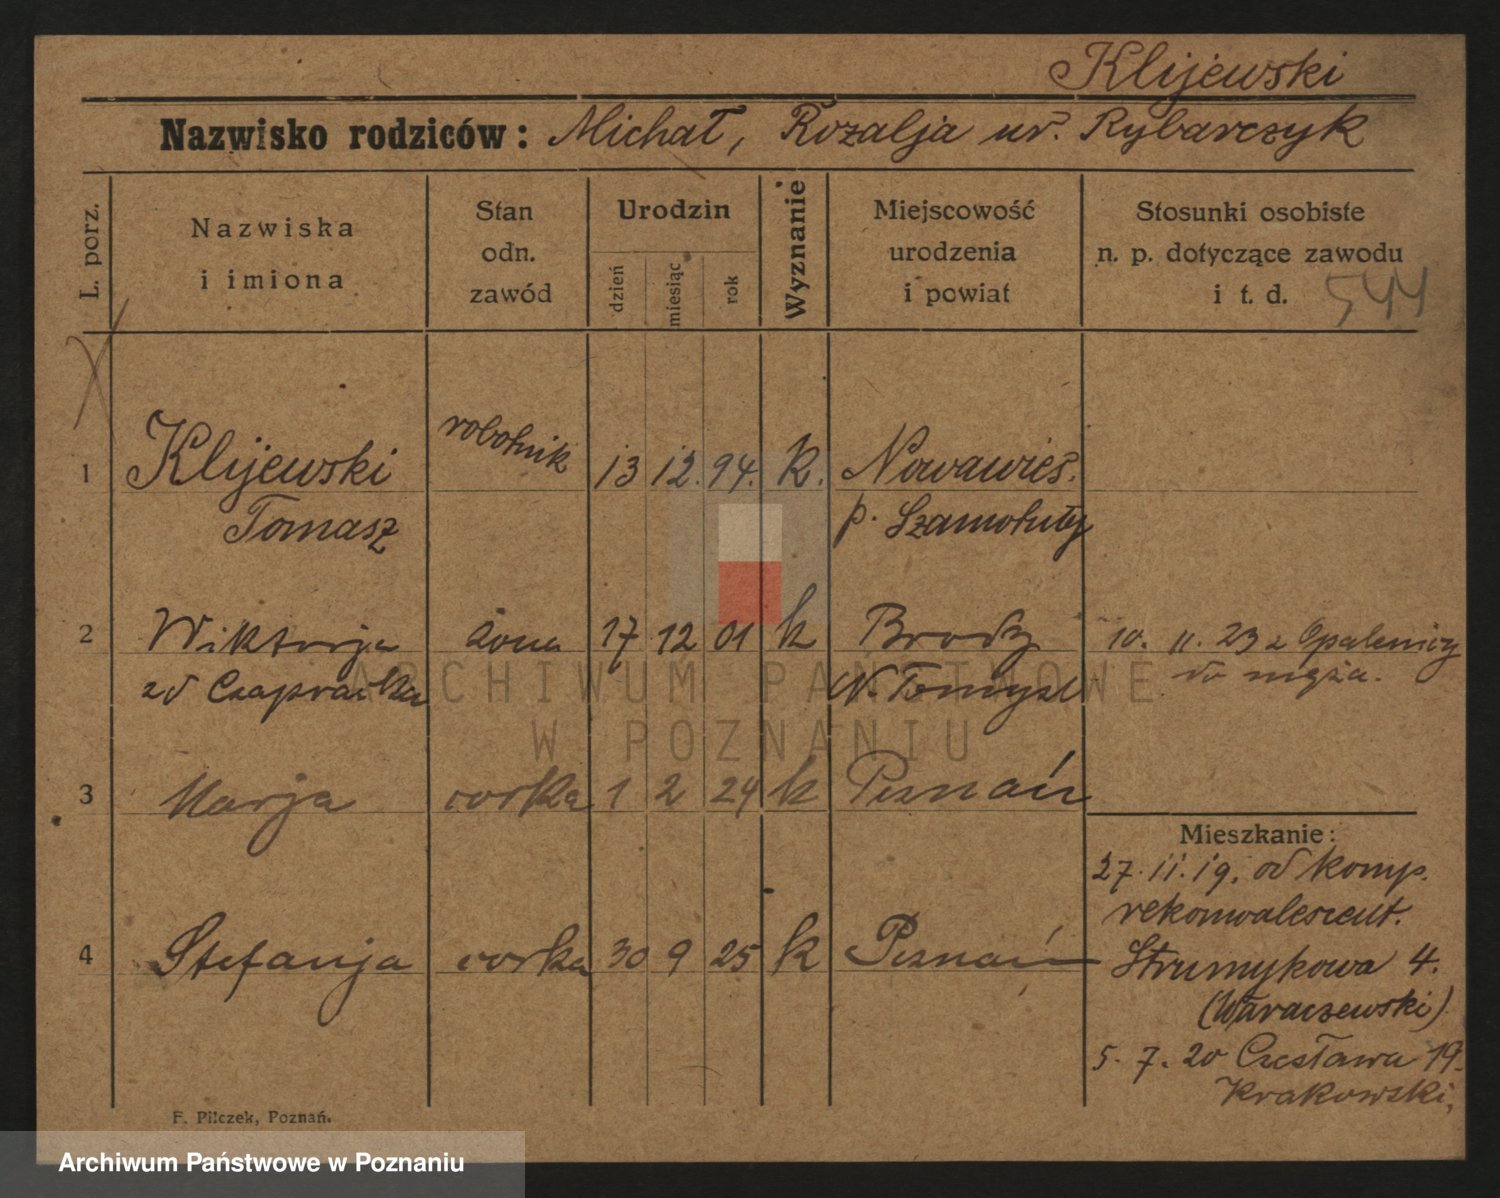 Klijewski
Nazwisko rodziców: Michał, Rozalja ur. Rybarczyk
L. porz.
Nazwiska
i imiona
Stan
odn.
zawód
Urodzin
dzień
miesiąc
rok
Wyznanie
Miejscowość
urodzenia
i powiat
Stosunki osobiste
n. p. dotyczące zawodu
i t. d.
544
1 Klijewski robotnik 13 12. 94. K. Nowawieś.
Tomasz p. Szamotuły
2 Wiktorja żona 17 12 01 k Brody 10. 11. 23 z Opalenicy
zd Czapracka N. Tomyśl do męża.
3 Marja corka 1 2 24 k Poznań
Mieszkanie:
27. 11. 19. od komp.
rekonwalescent.
4 Stefanja corka 30 9 25 k Poznań Strumykowa 4.
(Waraczewski)
5. 7. 20 Czesława 19.
Krakowski,
F. Pilczek, Poznań.
ARCHIWUM PAŃSTWOWE
W POZNANIU
Archiwum Państwowe w Poznaniu